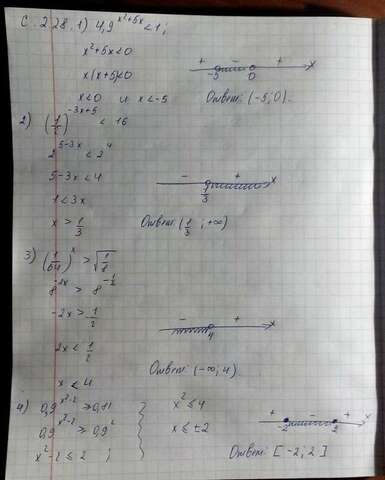 С. 228. 1) 4,9^{x²+5x} < 1;
x²+5x<0
x(x+5)<0
x<0 и x<-5
+ - +
-5 0 x
Ответ: (-5; 0).
2) (1/2)^{-3x+5} < 16
2^{5-3x} < 2^4
5-3x < 4
1 < 3x
x > 1/3
- +
1/3 x
Ответ: (1/3; +∞)
3) (1/64)^x > √(1/8)
8^{-2x} > 8^{-1/2}
-2x > 1/2
2x < 1/2
x < 4
- +
4 x
Ответ: (-∞; 4)
4) 0,9^{x²-2} ⩾ 0,81
0,9^{x²-2} ⩾ 0,9²
x²-2 ⩽ 2 ;
x² ⩽ 4
x ⩽ ±2
+ - +
-2 2 x
Ответ: [-2; 2]